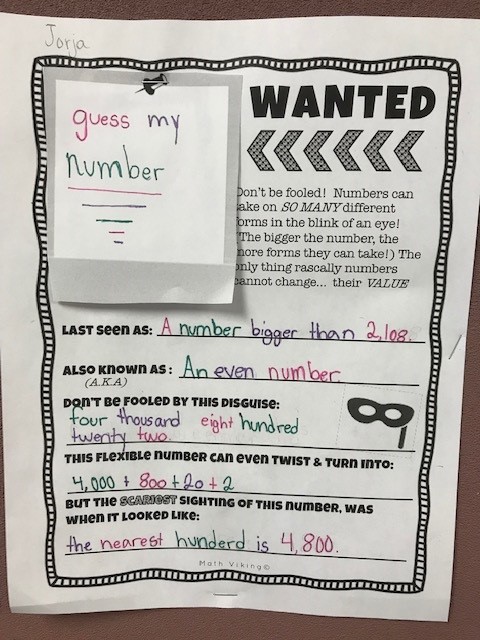 Jorja
guess my
number
WANTED
Don't be fooled! Numbers can
take on SO MANY different
forms in the blink of an eye!
(The bigger the number, the
more forms they can take!) The
only thing rascally numbers
cannot change... their VALUE
LAST SEEN AS: A number bigger than 2,108.
ALSO KNOWN AS: An even number.
(A.K.A)
DON'T BE FOOLED BY THIS DISGUISE:
four thousand eight hundred
twenty two.
THIS FLEXIBLE NUMBER CAN EVEN TWIST & TURN INTO:
4,000 + 800 + 20 + 2
BUT THE SCARIEST SIGHTING OF THIS NUMBER, WAS
WHEN IT LOOKED LIKE:
the nearest hunderd is 4,800.
Math Viking©